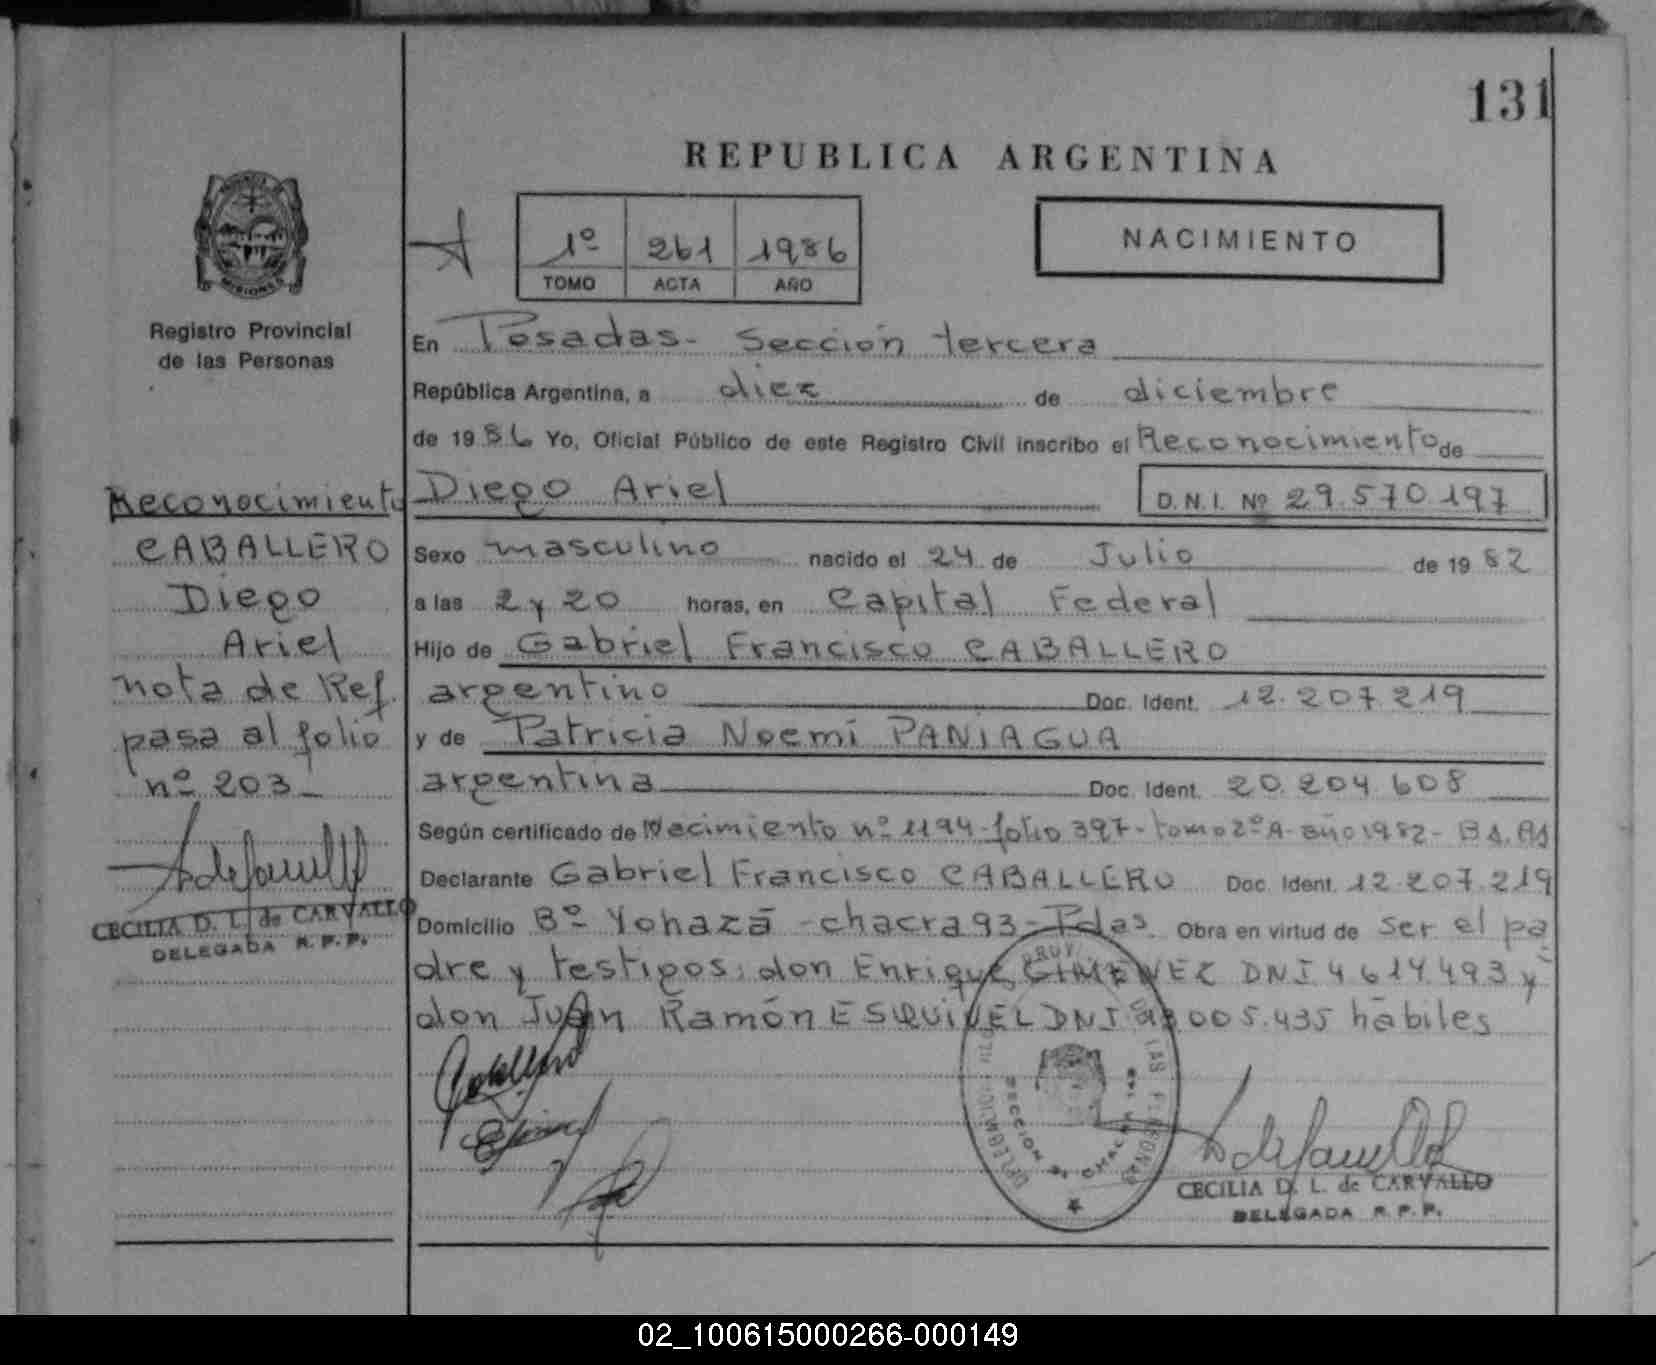 131
REPUBLICA ARGENTINA
1º 261 1986
TOMO ACTA AÑO
NACIMIENTO
PROVINCIA DE
MISIONES
Registro Provincial
de las Personas
En Posadas- Sección tercera
República Argentina, a diez de diciembre
de 1986 Yo, Oficial Público de este Registro Civil inscribo el Reconocimiento de
Diego Ariel D.N.I. Nº 29.570.197
Sexo masculino nacido el 24 de Julio de 1982
a las 2 y 20 horas, en Capital Federal
Hijo de Gabriel Francisco CABALLERO
argentino Doc. Ident. 12.207.219
y de Patricia Noemí PANIAGUA
argentina Doc. Ident. 20.204.608
Según certificado de Nacimiento nº 1194-folio 397-tomo 2º A-año 1982- Bs. As
Declarante Gabriel Francisco CABALLERO Doc. Ident. 12.207.219
Domicilio Bº Yohazá -chacra 93-Pdas. Obra en virtud de ser el pa
dre y testigos: don Enrique GIMENEZ DNI 4.614.493 y
don Juan Ramón ESQUIVEL DNI 005.435 hábiles
Reconocimiento
CABALLERO
Diego
Ariel
nota de Ref.
pasa al folio
nº 203-
CECILIA D. L. de CARVALLO
DELEGADA R. P. P.
SECCION CHACRA
LAS PERSONAS
CECILIA D. L. de CARVALLO
DELEGADA R. P. P.
02_100615000266-000149